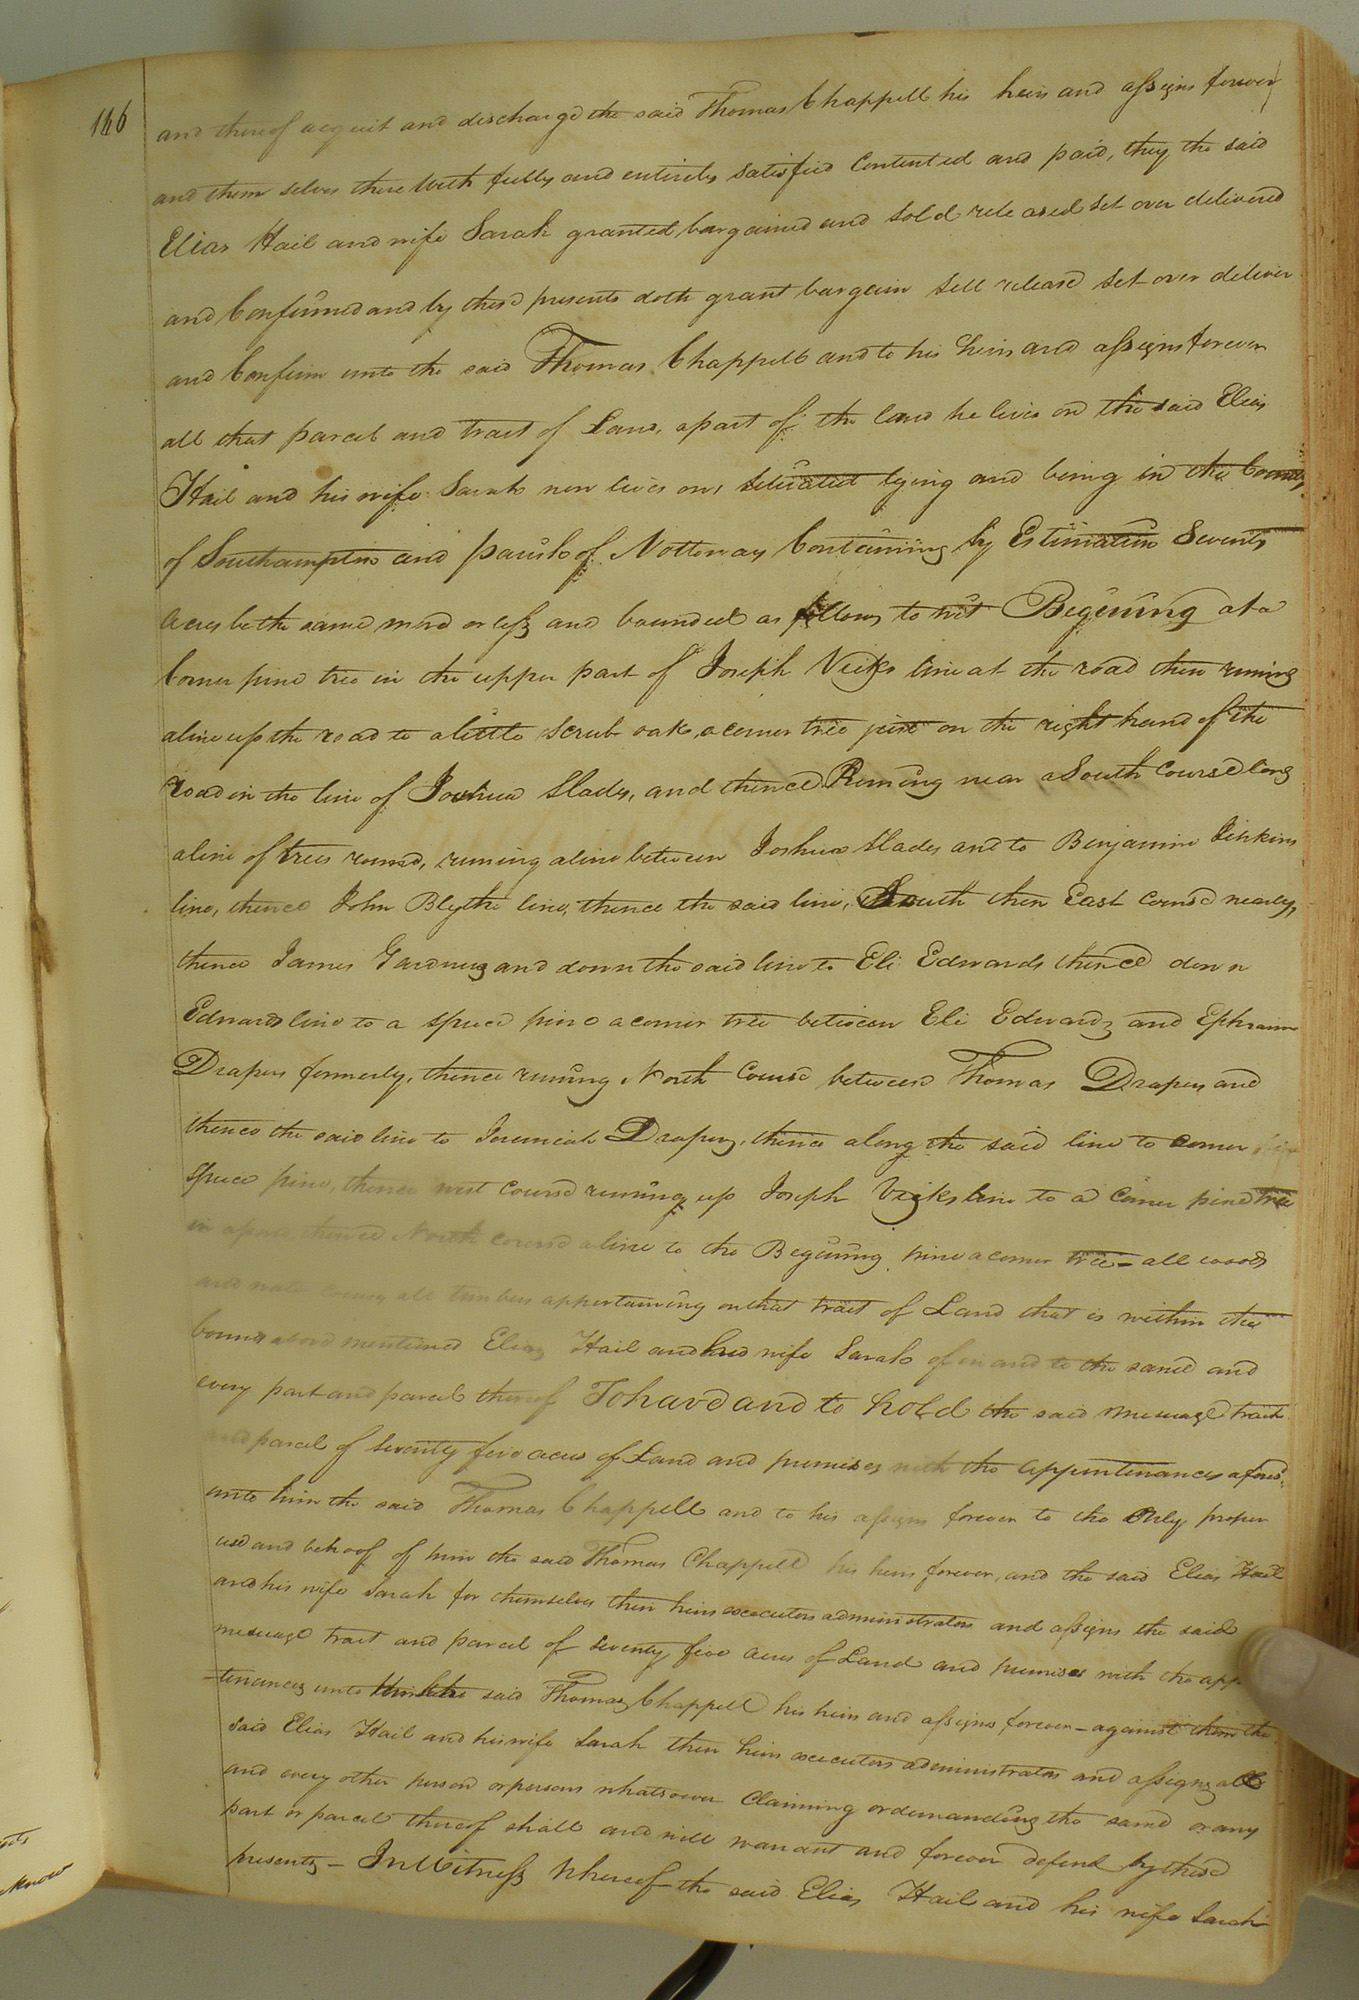 146
and thereof acquit and discharge the said Thomas Chappell his heirs and assigns forever
and them selves there with fully and entirely satisfied Contented and paid, they the said
Elias Hail and wife Sarah granted bargained and sold released set over delivered
and Confirmed and by these presents doth grant bargain sell release set over deliver
and Confirm unto the said Thomas Chappell and to his heirs and assigns forever
all that parcel and tract of Land, apart of the land he lives on the said Elias
Hail and his wife Sarah now lives on, situated lying and being in the County
of Southampton and parish of Nottoway Containing by Estimation Seventy
acres be the same more or less and bounded as follows to wit Begining at a
Corner pine tree in the upper part of Joseph Vicks line at the road then runing
a line up the road to a little scrub oak, a corner tree just on the right hand of the
road in the line of Joshua Slades, and thence Runing near a South course long
a line of trees round, runing a line between Joshua Slades and to Benjamin Jinkins
line, thence John Blythe line, thence the said line, South then East course nearly,
thence James Gardners and down the said line to Eli Edwards thence down
Edwards line to a spruce pine a corner tree between Eli Edwards and Ephraim
Drapers formerly, thence runing North Course between Thomas Drapers and
thence the said line to Jeremiah Drapers, thence along the said line to corner
Spruce pine, thence west course runing up Joseph Vicks line to a corner pine tree
in a thence North course a line to the Begining pine a corner tree - all woods
and all timbers appertaining on that tract of Land that is within the
bounds above mentioned Elias Hail and his wife Sarah of in and to the same and
every part and parcel thereof To have and to hold the said messuage tract
and parcel of seventy five acres of Land and premises with the appurtenances afores:
unto him the said Thomas Chappell and to his assigns forever to the only proper
use and behoof of him the said Thomas Chappell his heirs forever, and the said Elias Hail
and his wife Sarah for themselves their heirs executors administrators and assigns the said
messuage tract and parcel of seventy five acres of Land and premises with the app
-tenances unto the said Thomas Chappell his heirs and assigns forever - against them the
said Elias Hail and his wife Sarah their heirs executors administrators and assigns all
and every other person or persons whatsoever Claiming or demanding the same or any
part or parcel thereof shall and will warrant and forever defend by these
presents - In Witness whereof the said Elias Hail and his wife Sarah
know